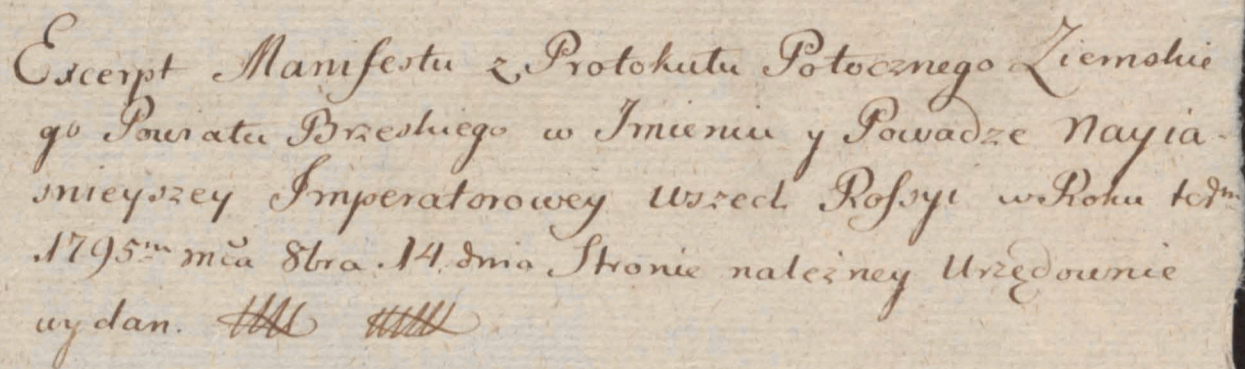 Excerpt Manifestu z Protokułu Potocznego Ziemskie
go Powiatu Brzeskiego w Imieniu y Powadze Nayia-
snieyszey Imperatorowey Wszech Rossyi w Roku teÿm
1795m mca 8bra 14 dnia Stronie należney Urzędownie
wydan.